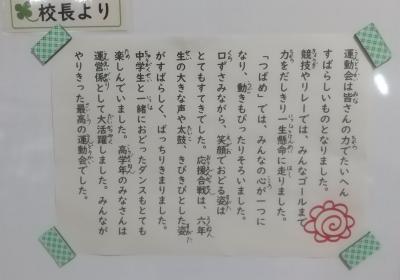 校長より
運動会は皆さんの力でたいへん
すばらしいものとなりました。
競技やリレーでは、みんなゴールまで
力をだしきり一生懸命に走りました。
「つばめ」では、みんなの心が一つに
なり、動きもぴったりそろいました。
口ずさみながら、笑顔でおどる姿は
とてもすてきでした。応援合戦は、六年
生の大きな声や太鼓、きびきびとした姿
がすばらしく、ばっちりきまりました。
中学生と一緒におどったダンスもとても
楽しんでいました。高学年のみなさんは
運営係として大活躍しました。みんなが
やりきった最高の運動会でした。